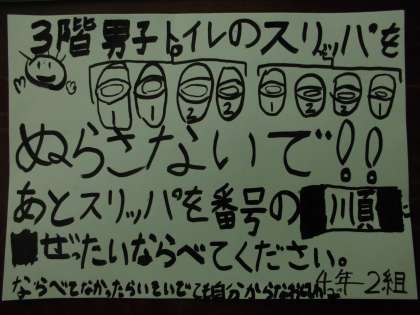 3階男子トイレのスリッパを
1 1 2 2 1 2 2 1
ぬらさないで!!
あとスリッパを番号の順に
ぜったいならべてください。
ならべてなかったらいそいでても自分から
4年2組